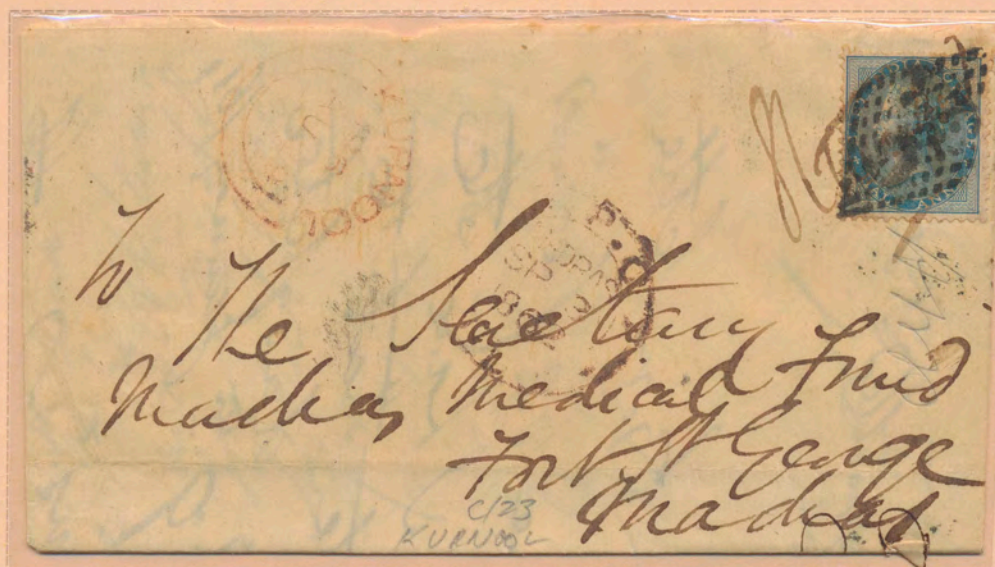 KURNOOL
To The Secretary
Madras Medical Fund
Fort St George
Madras
C/23
KURNOOL